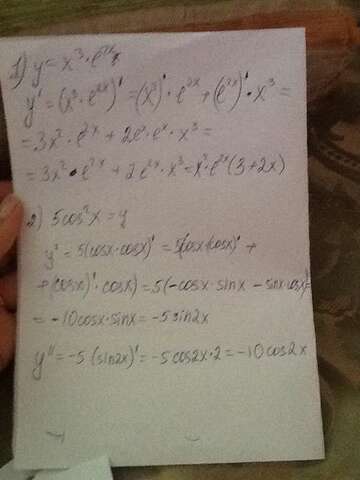 1) y = x³·e²ˣ
y' = (x³·e²ˣ)' = (x³)'·e²ˣ + (e²ˣ)'·x³ =
= 3x²·e²ˣ + 2eˣ·eˣ·x³ =
= 3x²·e²ˣ + 2e²ˣ·x³ = x²·e²ˣ(3+2x)
2) 5cos²x = y
y' = 5(cosx·cosx)' = 5(cosx·(cosx)' +
+ (cosx)'·cosx) = 5(-cosx·sinx - sinx·cosx) =
= -10cosx·sinx = -5sin2x
y'' = -5(sin2x)' = -5cos2x·2 = -10cos2x